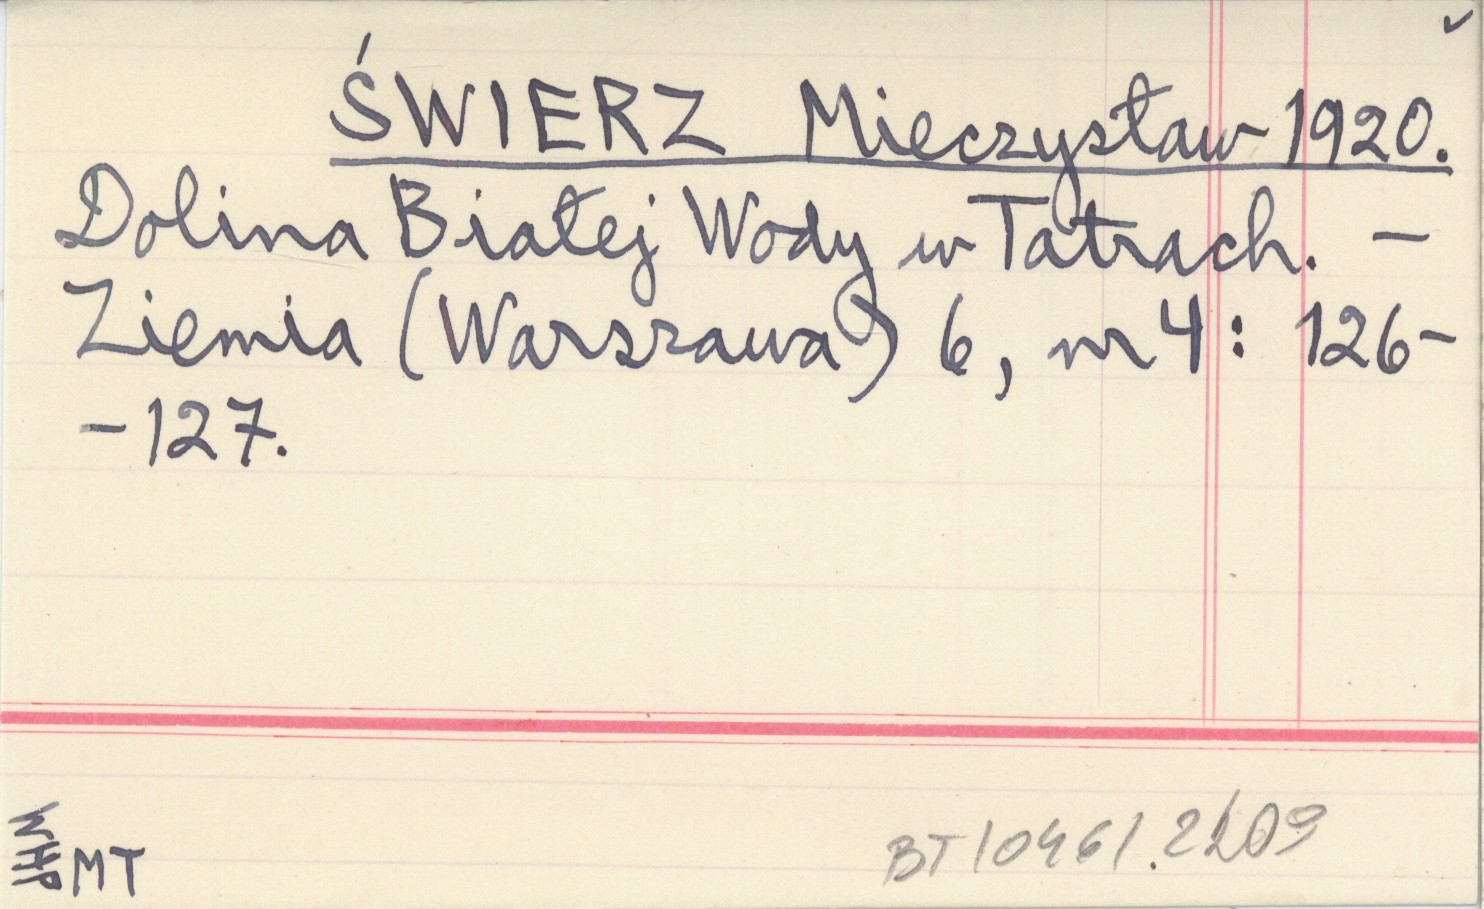 ŚWIERZ Mieczysław 1920.
Dolina Białej Wody w Tatrach. –
Ziemia (Warszawa) 6, nr 4: 126–
–127.
WHP
MT
BT/046/.2209